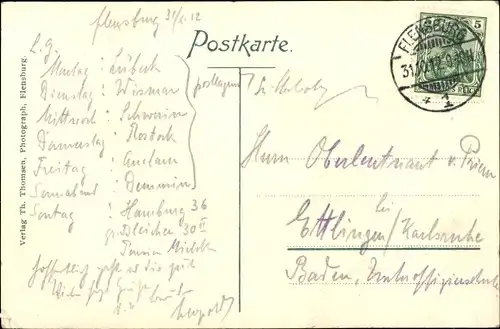 Flensburg 31/1.12
Postkarte.
FLENSBURG
31.
1
5
L. G.
Montag : Lübeck
Dienstag : Wismar
Mittwoch : Schwerin
Donnerstag : Rostock
Freitag : Anclam
Sonnabend : Demmin
Sontag : Hamburg 36
gr. Bleichen 30 II
Pension
postlagernd
Hoffentlich geht es dir gut
Leopold
Herrn Oberleutnant v.
bei
Ettlingen / Karlsruhe
Baden, Unteroffizierschule
Verlag Th. Thomsen, Photograph, Flensburg.